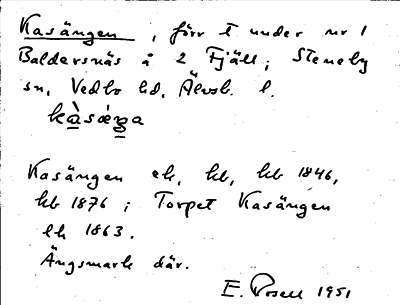 Kasängen, förr t under nr 1
Baldersnäs å 2 Fjäll; Steneby
sn, Vedbo hd, Älvsb. l.
kàsǽŋa
Kasängen ek, hb, hb 1846,
hb 1876; Torpet Kasängen
lh 1863.
Ängsmark där.
E. Rosell 1951